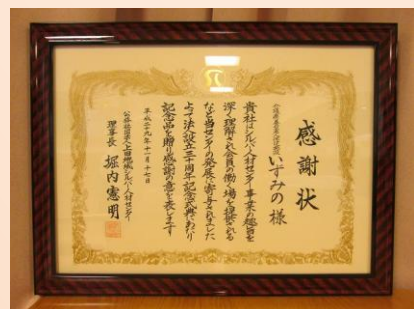 感謝状
いずみの様
貴社はシルバー人材センター事業の趣旨を
深く理解され会員の働く場を提供される
など当センターの発展に寄与されました
よって法人設立三十周年記念式典にあたり
記念品を贈り感謝の意を表します
平成二十九年十一月十七日
公益社団法人上田地域シルバー人材センター
理事長 堀内憲明